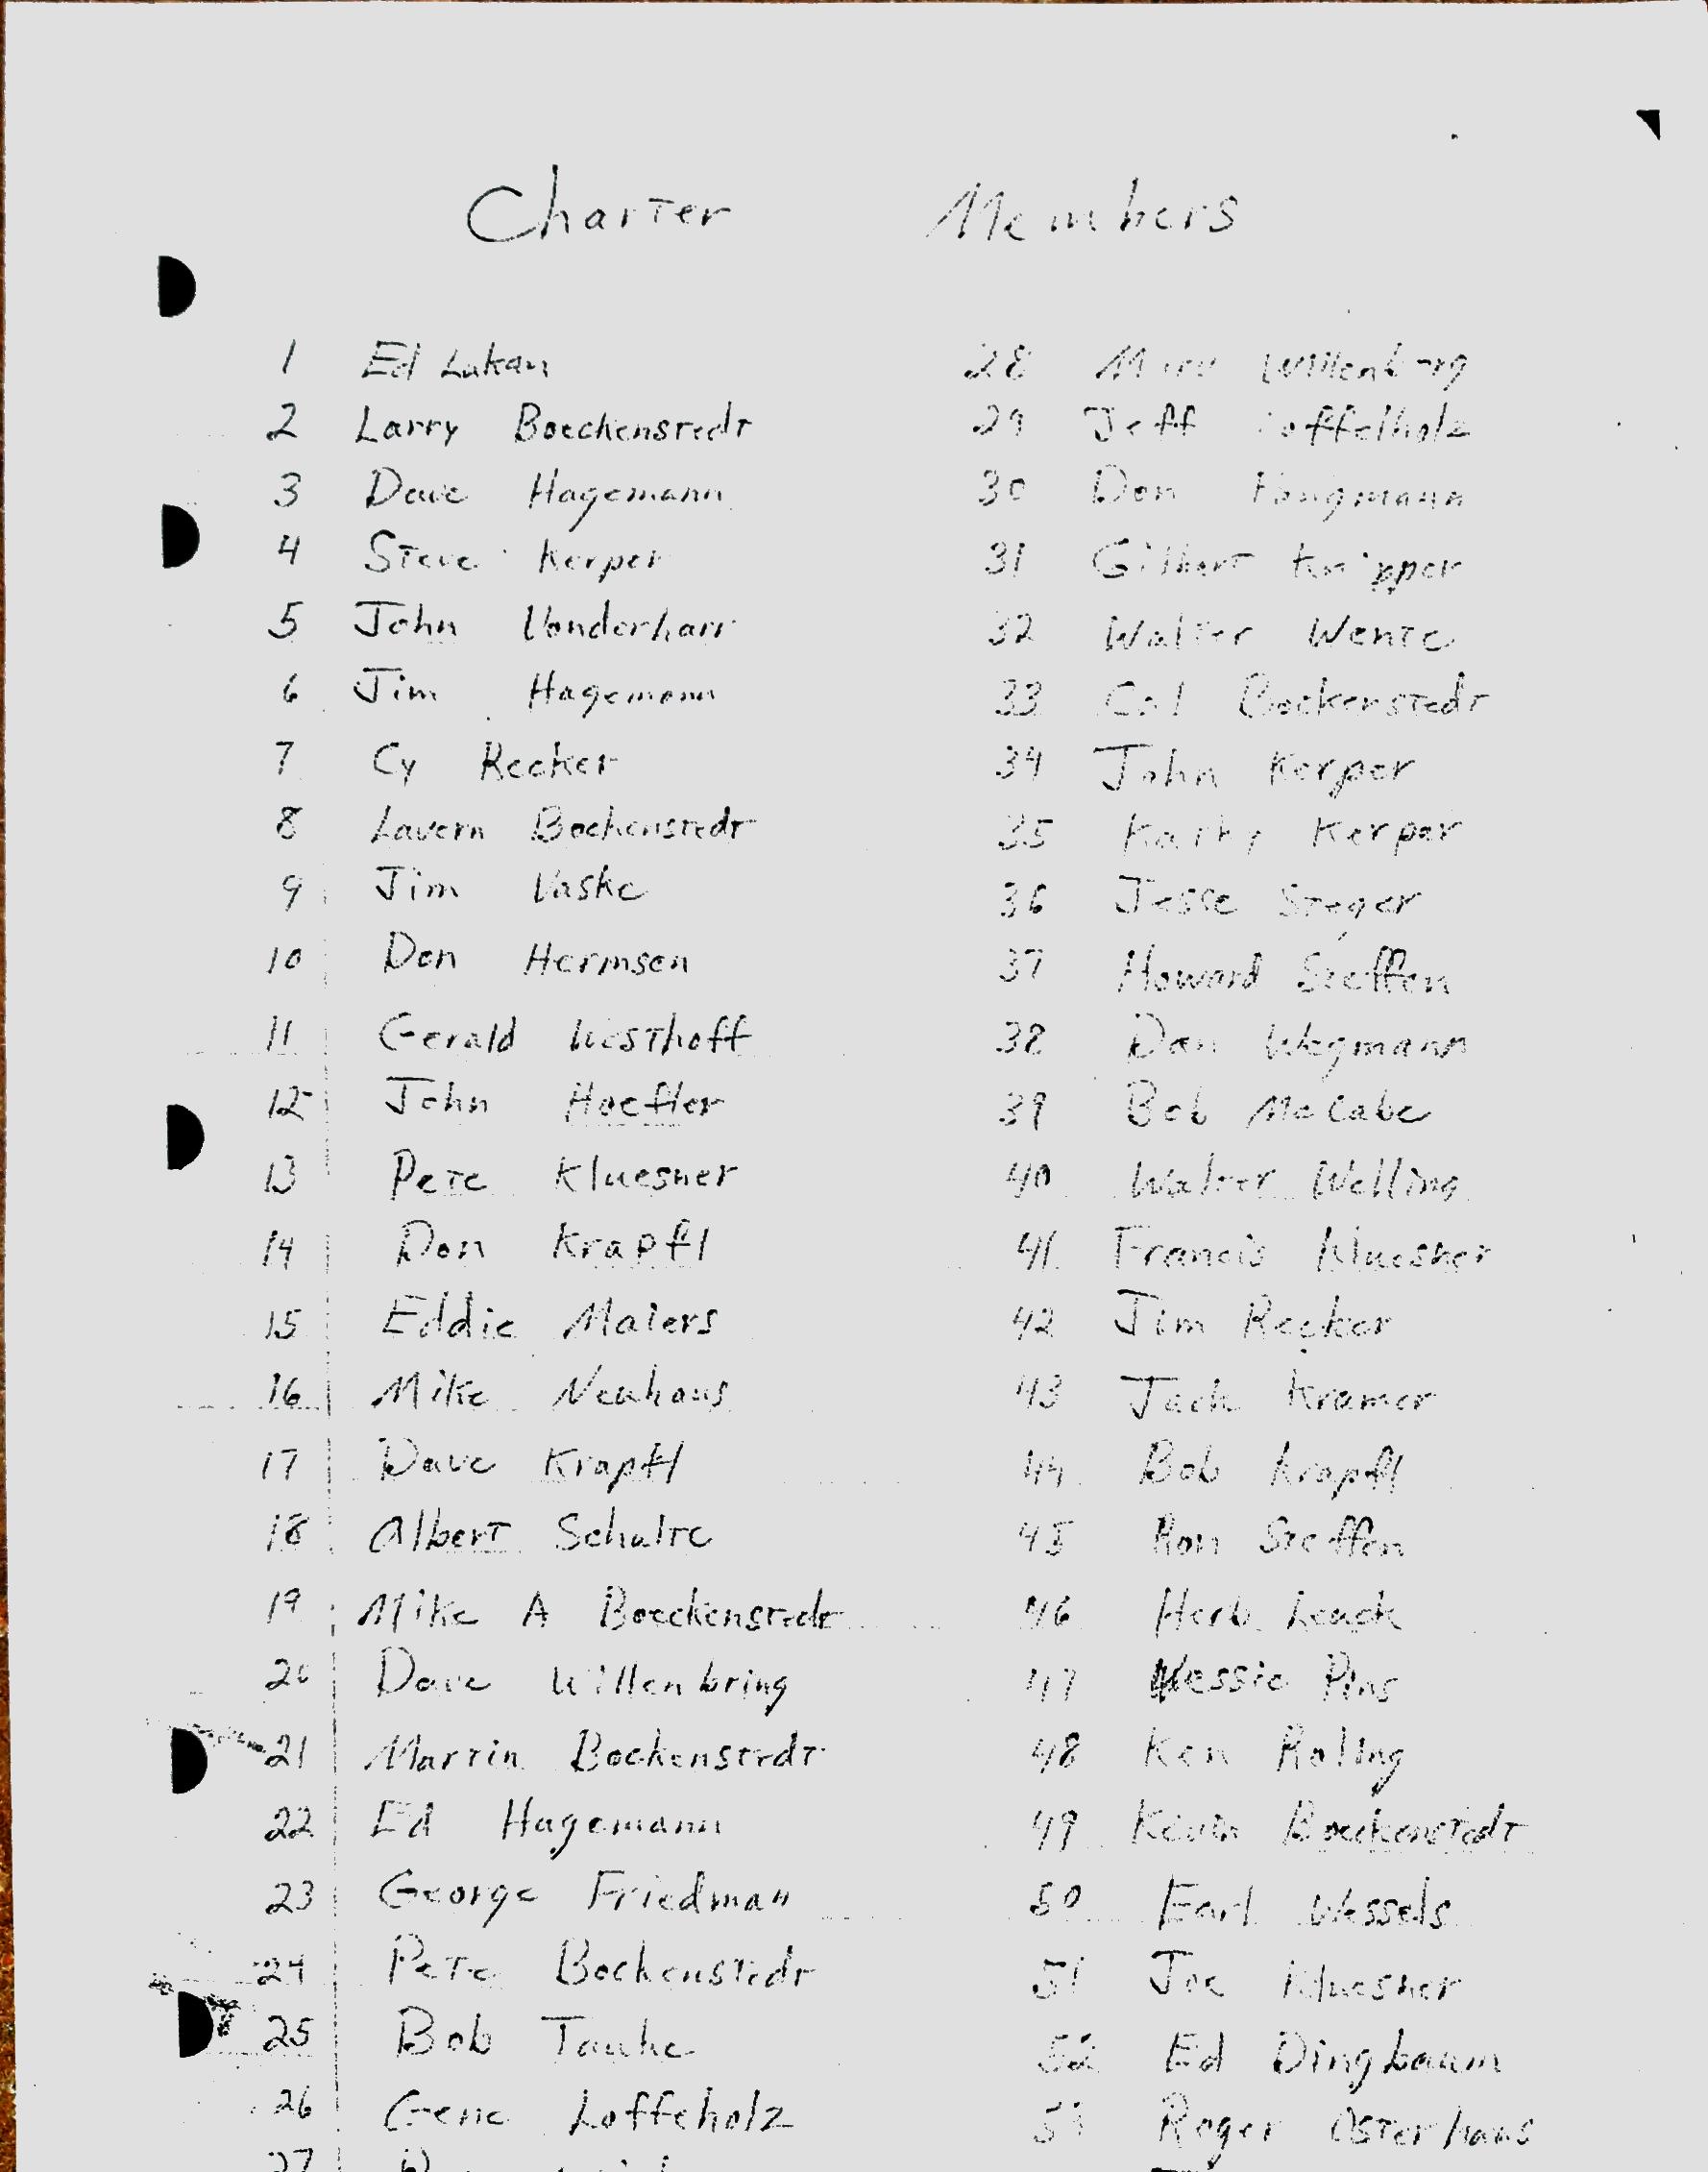 Charter Members
1 Ed Lukan
2 Larry Boeckenstedt
3 Dave Hagemann
4 Steve Kerper
5 John Vonderharr
6 Jim Hagemann
7 Cy Recker
8 Lavern Bockenstedt
9 Jim Vaske
10 Don Hermsen
11 Gerald Westhoff
12 John Hoefler
13 Pete Kluesner
14 Don Krapfl
15 Eddie Maiers
16 Mike Neuhaus
17 Dave Krapfl
18 Albert Schulte
19 Mike A Boeckenstedt
20 Dave Willenbring
21 Martin Bockenstedt
22 Ed Hagemann
23 George Friedman
24 Pete Bockenstedt
25 Bob Tauke
26 Gene Loffeholz
27
28
29 Jeff
30 Don
31 Gilbert Knipper
32 Walter Wente
33 Cal Bockenstedt
34 John Kerper
35 Kathy Kerper
36 Jesse Steger
37 Howard Steffen
38 Dan Wegmann
39 Bob McCabe
40 Walter Welling
41 Francis Kluesner
42 Jim Recker
43 Jack Kramer
44 Bob Krapfl
45 Ron Steffen
46 Herb Leuck
47 Pins
48 Ken Roling
49 Kevin Boeckenstedt
50 Earl Wessels
51 Joe Kluesner
52 Ed Dingbaum
53 Roger Osterhaus